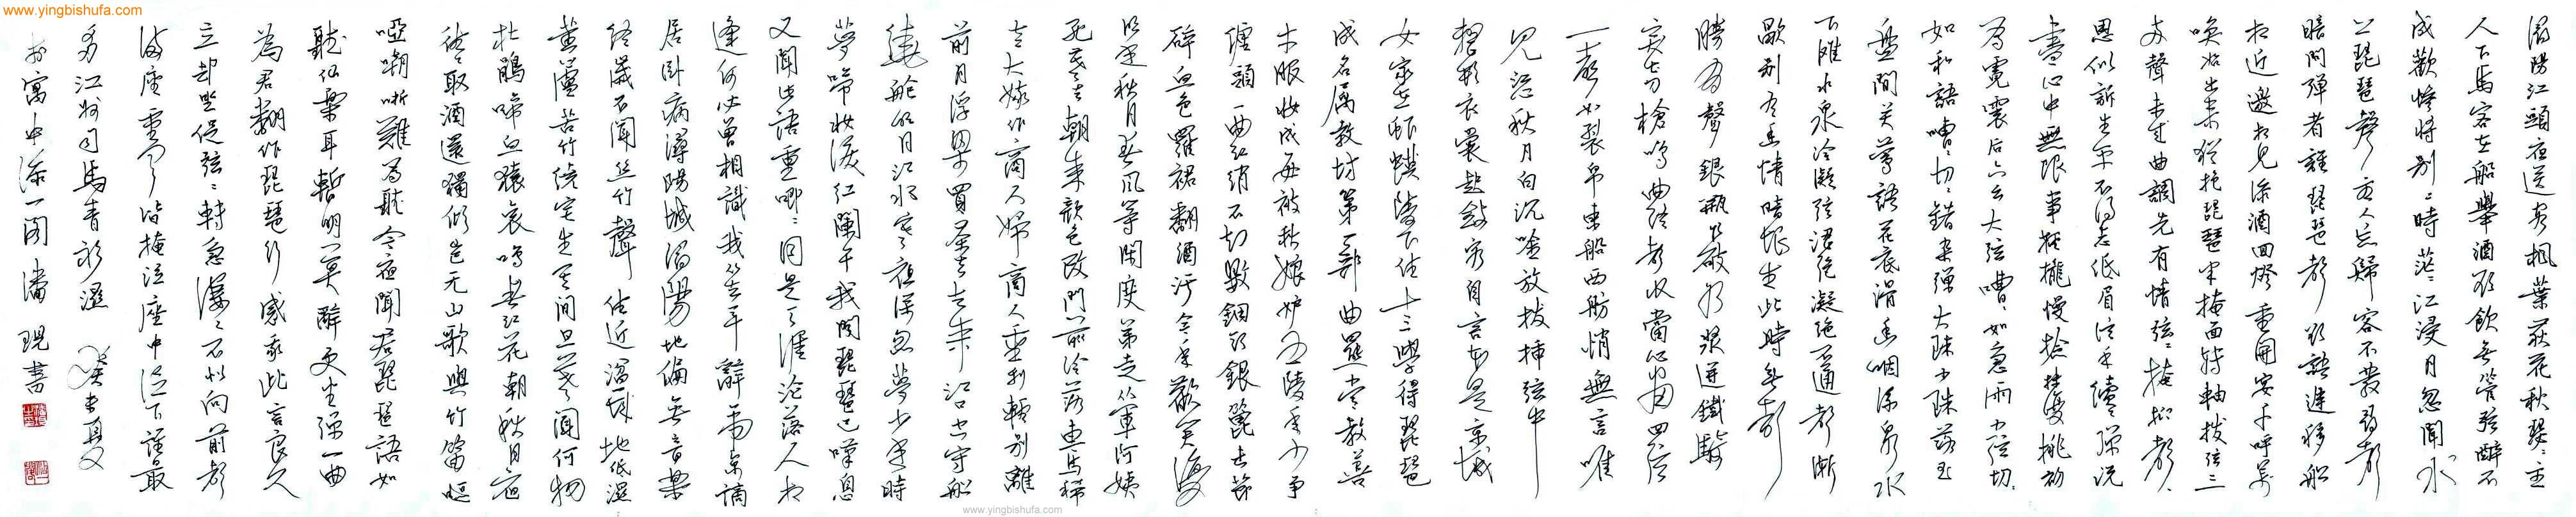 www.yingbishufa.com
潯陽江頭夜送客楓葉荻花秋瑟瑟主
人下馬客在船舉酒欲飲無管弦醉不
成歡慘將別別時茫茫江浸月忽聞水
上琵琶聲主人忘歸客不發尋聲
暗問彈者誰琵琶聲欲語遲移船
相近邀相見添酒回燈重開宴千呼萬
喚始出來猶抱琵琶半掩面轉軸撥弦三
兩聲未成曲調先有情弦弦掩抑聲聲
思似訴生平不得志低眉信手續續彈說
盡心中無限事輕攏慢撚抹復挑初
為霓裳后六幺大弦嘈嘈如急雨小弦切切
如私語嘈嘈切切錯雜彈大珠小珠落玉
盤間关鶯語花底滑幽咽流泉水
下灘水泉冷澀弦凝絕凝絕不通聲漸
歇別有幽情暗恨生此時無聲
勝有聲銀瓶乍破水漿迸鐵騎
突出刀槍鳴曲終收撥當心畫四弦
一聲如裂帛東船西舫悄無言唯
見江秋月白沉吟放撥插弦中
整頓衣裳起斂容自言本是京城
女家在蝦蟆陵下住十三學得琵琶
成名属教坊第一部曲罷常教善
才服妝成每被秋娘妒五陵年少爭
纏頭一曲紅綃不知數鈿頭銀篦擊節
碎血色羅裙翻酒污今年歡笑復
明年秋月春風等閑度弟走從軍阿姨
死暮去朝來顏色改門前冷落車馬稀
老大嫁作商人婦商人重利輕別離
前月浮梁買茶去去來江口空守船
繞船明月江水寒夜深忽夢少年時
夢啼妝淚紅闌干我聞琵琶已嘆息
又聞此語重唧唧同是天涯淪落人相
逢何必曾相識我從去年辭帝京謫
居臥病潯陽城潯陽地偏無音樂
終歲不聞絲竹聲住近湓城地低濕
黃蘆苦竹繞宅生其間旦暮聞何物
杜鵑啼血猿哀鳴春江花朝秋月夜
往往取酒還獨傾豈无山歌與竹笛嘔
啞嘲哳難為聽今夜聞君琵琶語如
聽仙樂耳暫明莫辭更坐彈一曲
為君翻作琵琶行感我此言良久
立却坐促弦弦轉急淒淒不似向前聲
滿座重聞皆掩泣座中泣下誰最
多江州司馬青衫濕 癸未夏
於寓中添一閣 潘 現書
www.yingbishufa.com